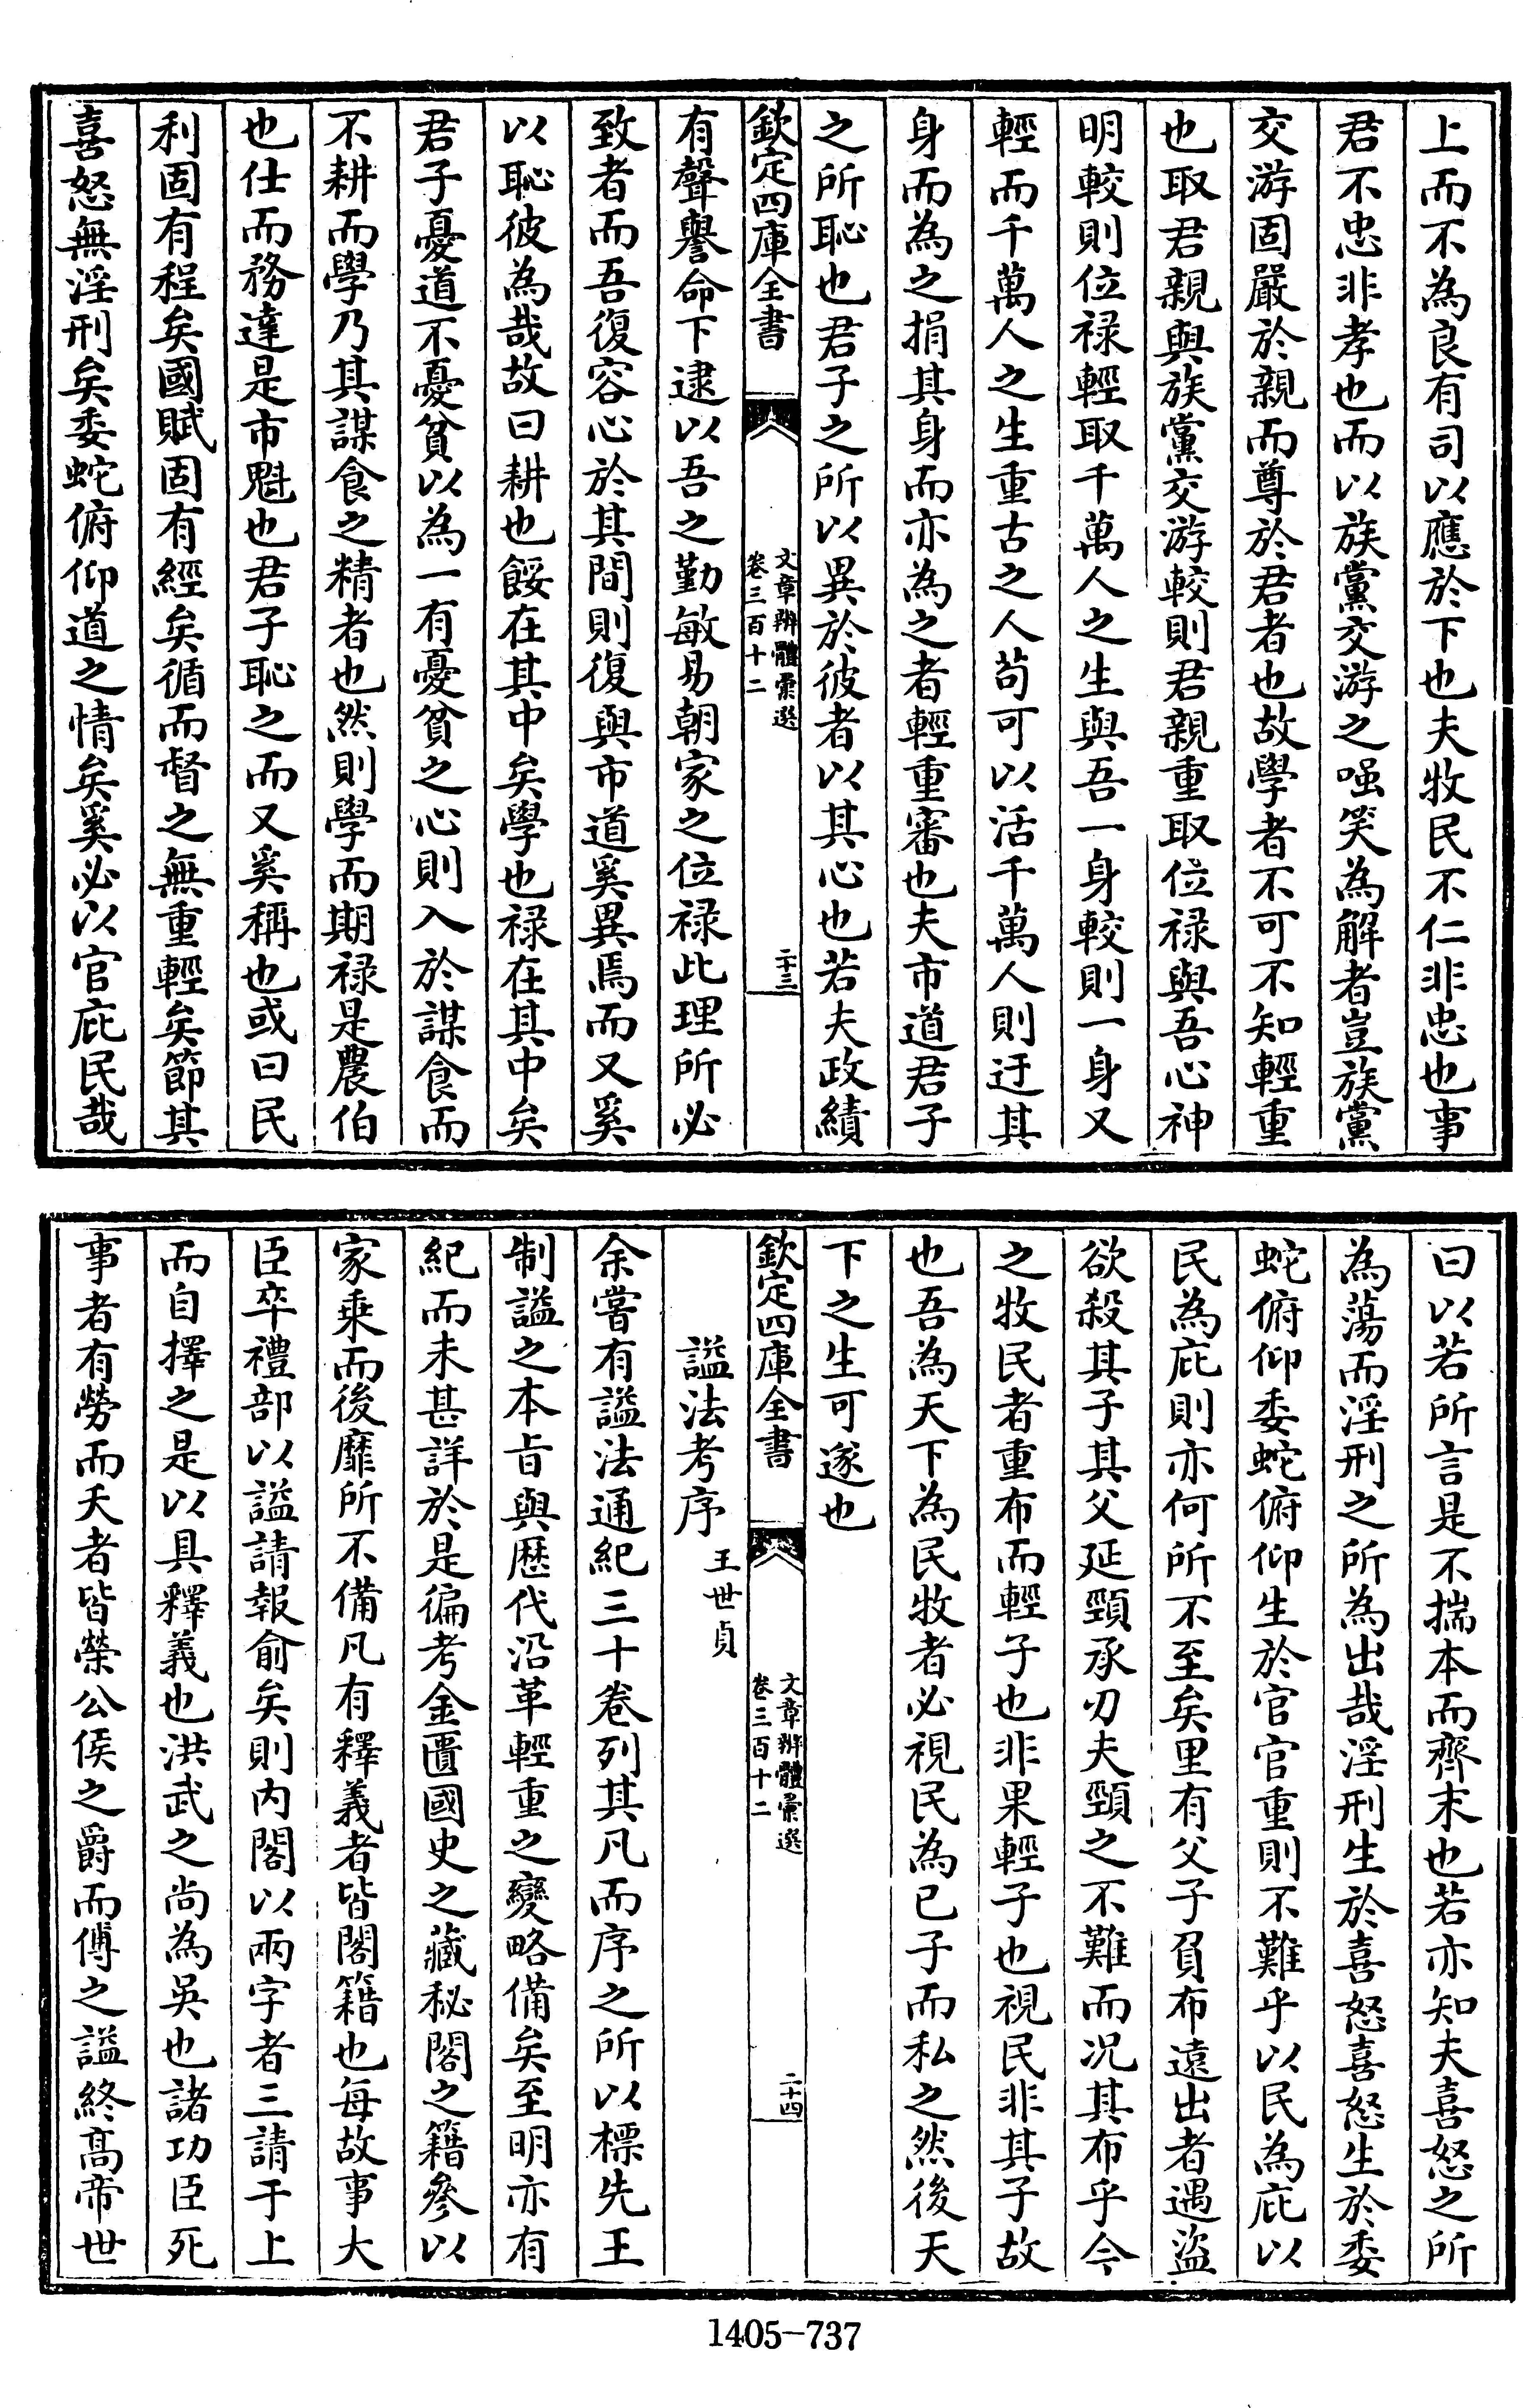 上而不為良有司以應於下也夫牧民不仁非忠也事
君不忠非孝也而以族黨交游之嗤笑為解者豈族黨
交游固嚴於親而尊於君者也故學者不可不知輕重
也取君親與族黨交游較則君親重取位祿與吾心神
明較則位祿輕取千萬人之生與吾一身較則一身又
輕而千萬人之生重古之人苟可以活千萬人則迂其
身而為之捐其身而亦為之者輕重審也夫市道君子
之所恥也君子之所以異於彼者以其心也若夫政績
欽定四庫全書
文章辨體彙選
卷三百十二
二十三
有聲譽命下逮以吾之勤敏易朝家之位祿此理所必
致者而吾復容心於其間則復與市道奚異焉而又奚
以恥彼為哉故曰耕也餒在其中矣學也祿在其中矣
君子憂道不憂貧以為一有憂貧之心則入於謀食而
不耕而學乃其謀食之精者也然則學而期祿是農伯
也仕而務達是市魁也君子恥之而又奚稱也或曰民
利固有程矣國賦固有經矣循而督之無重輕矣節其
喜怒無淫刑矣委蛇俯仰道之情矣奚必以官庇民哉
曰以若所言是不揣本而齊末也若亦知夫喜怒之所
為蕩而淫刑之所為出哉淫刑生於喜怒喜怒生於委
蛇俯仰委蛇俯仰生於官官重則不難乎以民為庇以
民為庇則亦何所不至矣里有父子負布遠出者遇盜
欲殺其子其父延頸承刃夫頸之不難而況其布乎今
之牧民者重布而輕子也非果輕子也視民非其子故
也吾為天下為民牧者必視民為已子而私之然後天
下之生可遂也
欽定四庫全書
文章辨體彙選
卷三百十二
二十四
諡法考序 王世貞
余嘗有諡法通紀三十卷列其凡而序之所以標先王
制諡之本旨與歷代沿革輕重之變略備矣至明亦有
紀而未甚詳於是徧考金匱國史之藏秘閣之籍參以
家乘而後靡所不備凡有釋義者皆閣籍也每故事大
臣卒禮部以諡請報俞矣則內閣以兩字者三請于上
而自擇之是以具釋義也洪武之尚為吳也諸功臣死
事者有勞而夭者皆榮公侯之爵而傅之諡終高帝世
1405-737